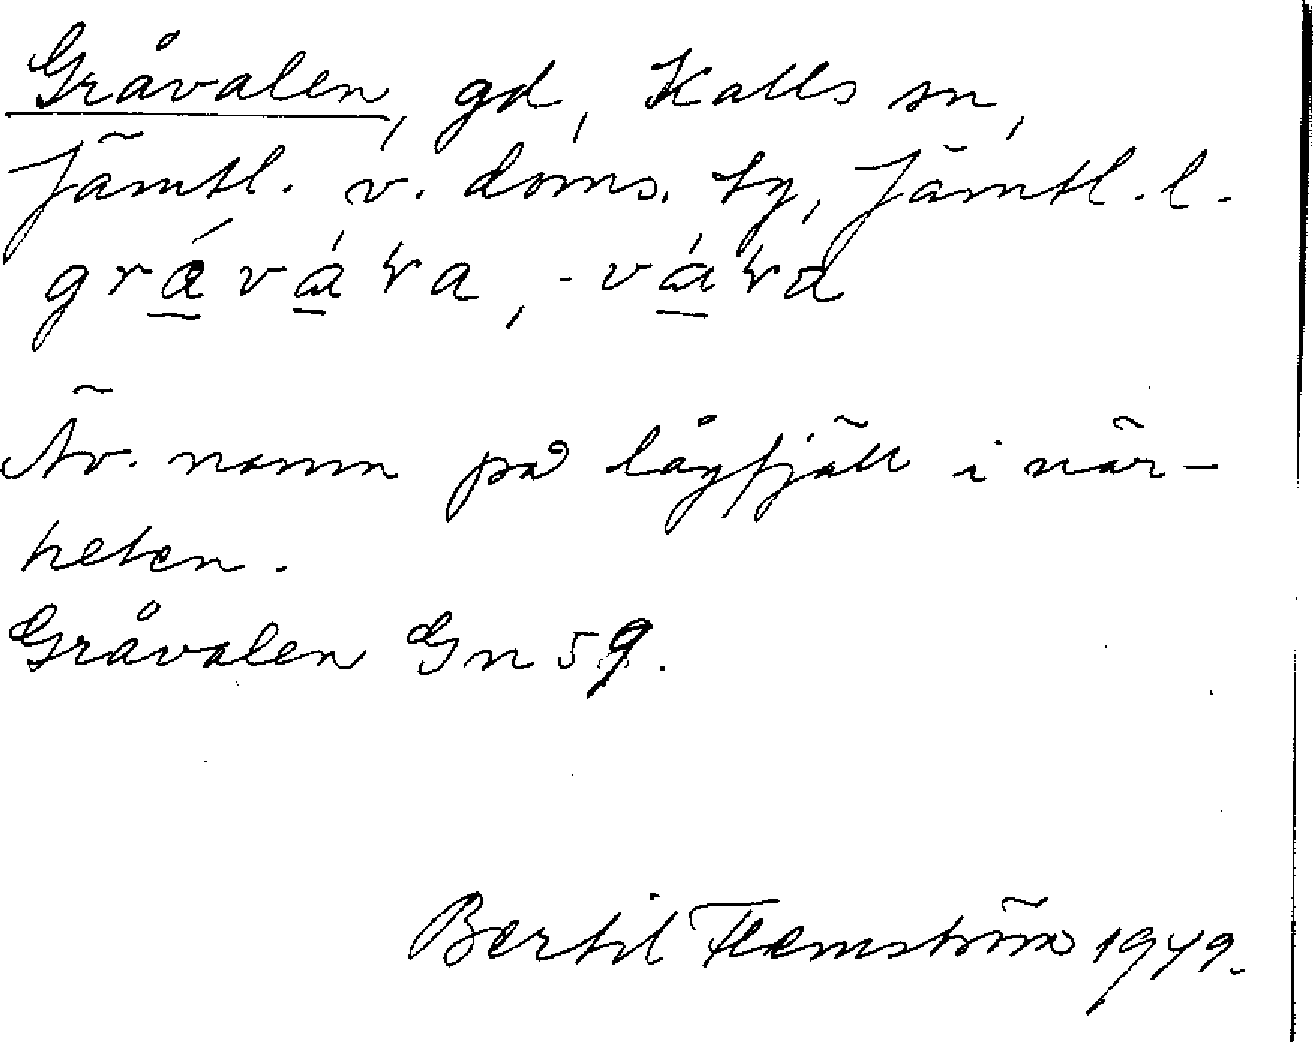 Gråvalen, gd, Kalls sn,
Jämtl. v. doms. tg, Jämtl. l.
gráváʹra, -váʹra
Äv. namn på lågfjäll i när-
heten.
Gråvalen Gn 59.
Bertil Flemström 1949.